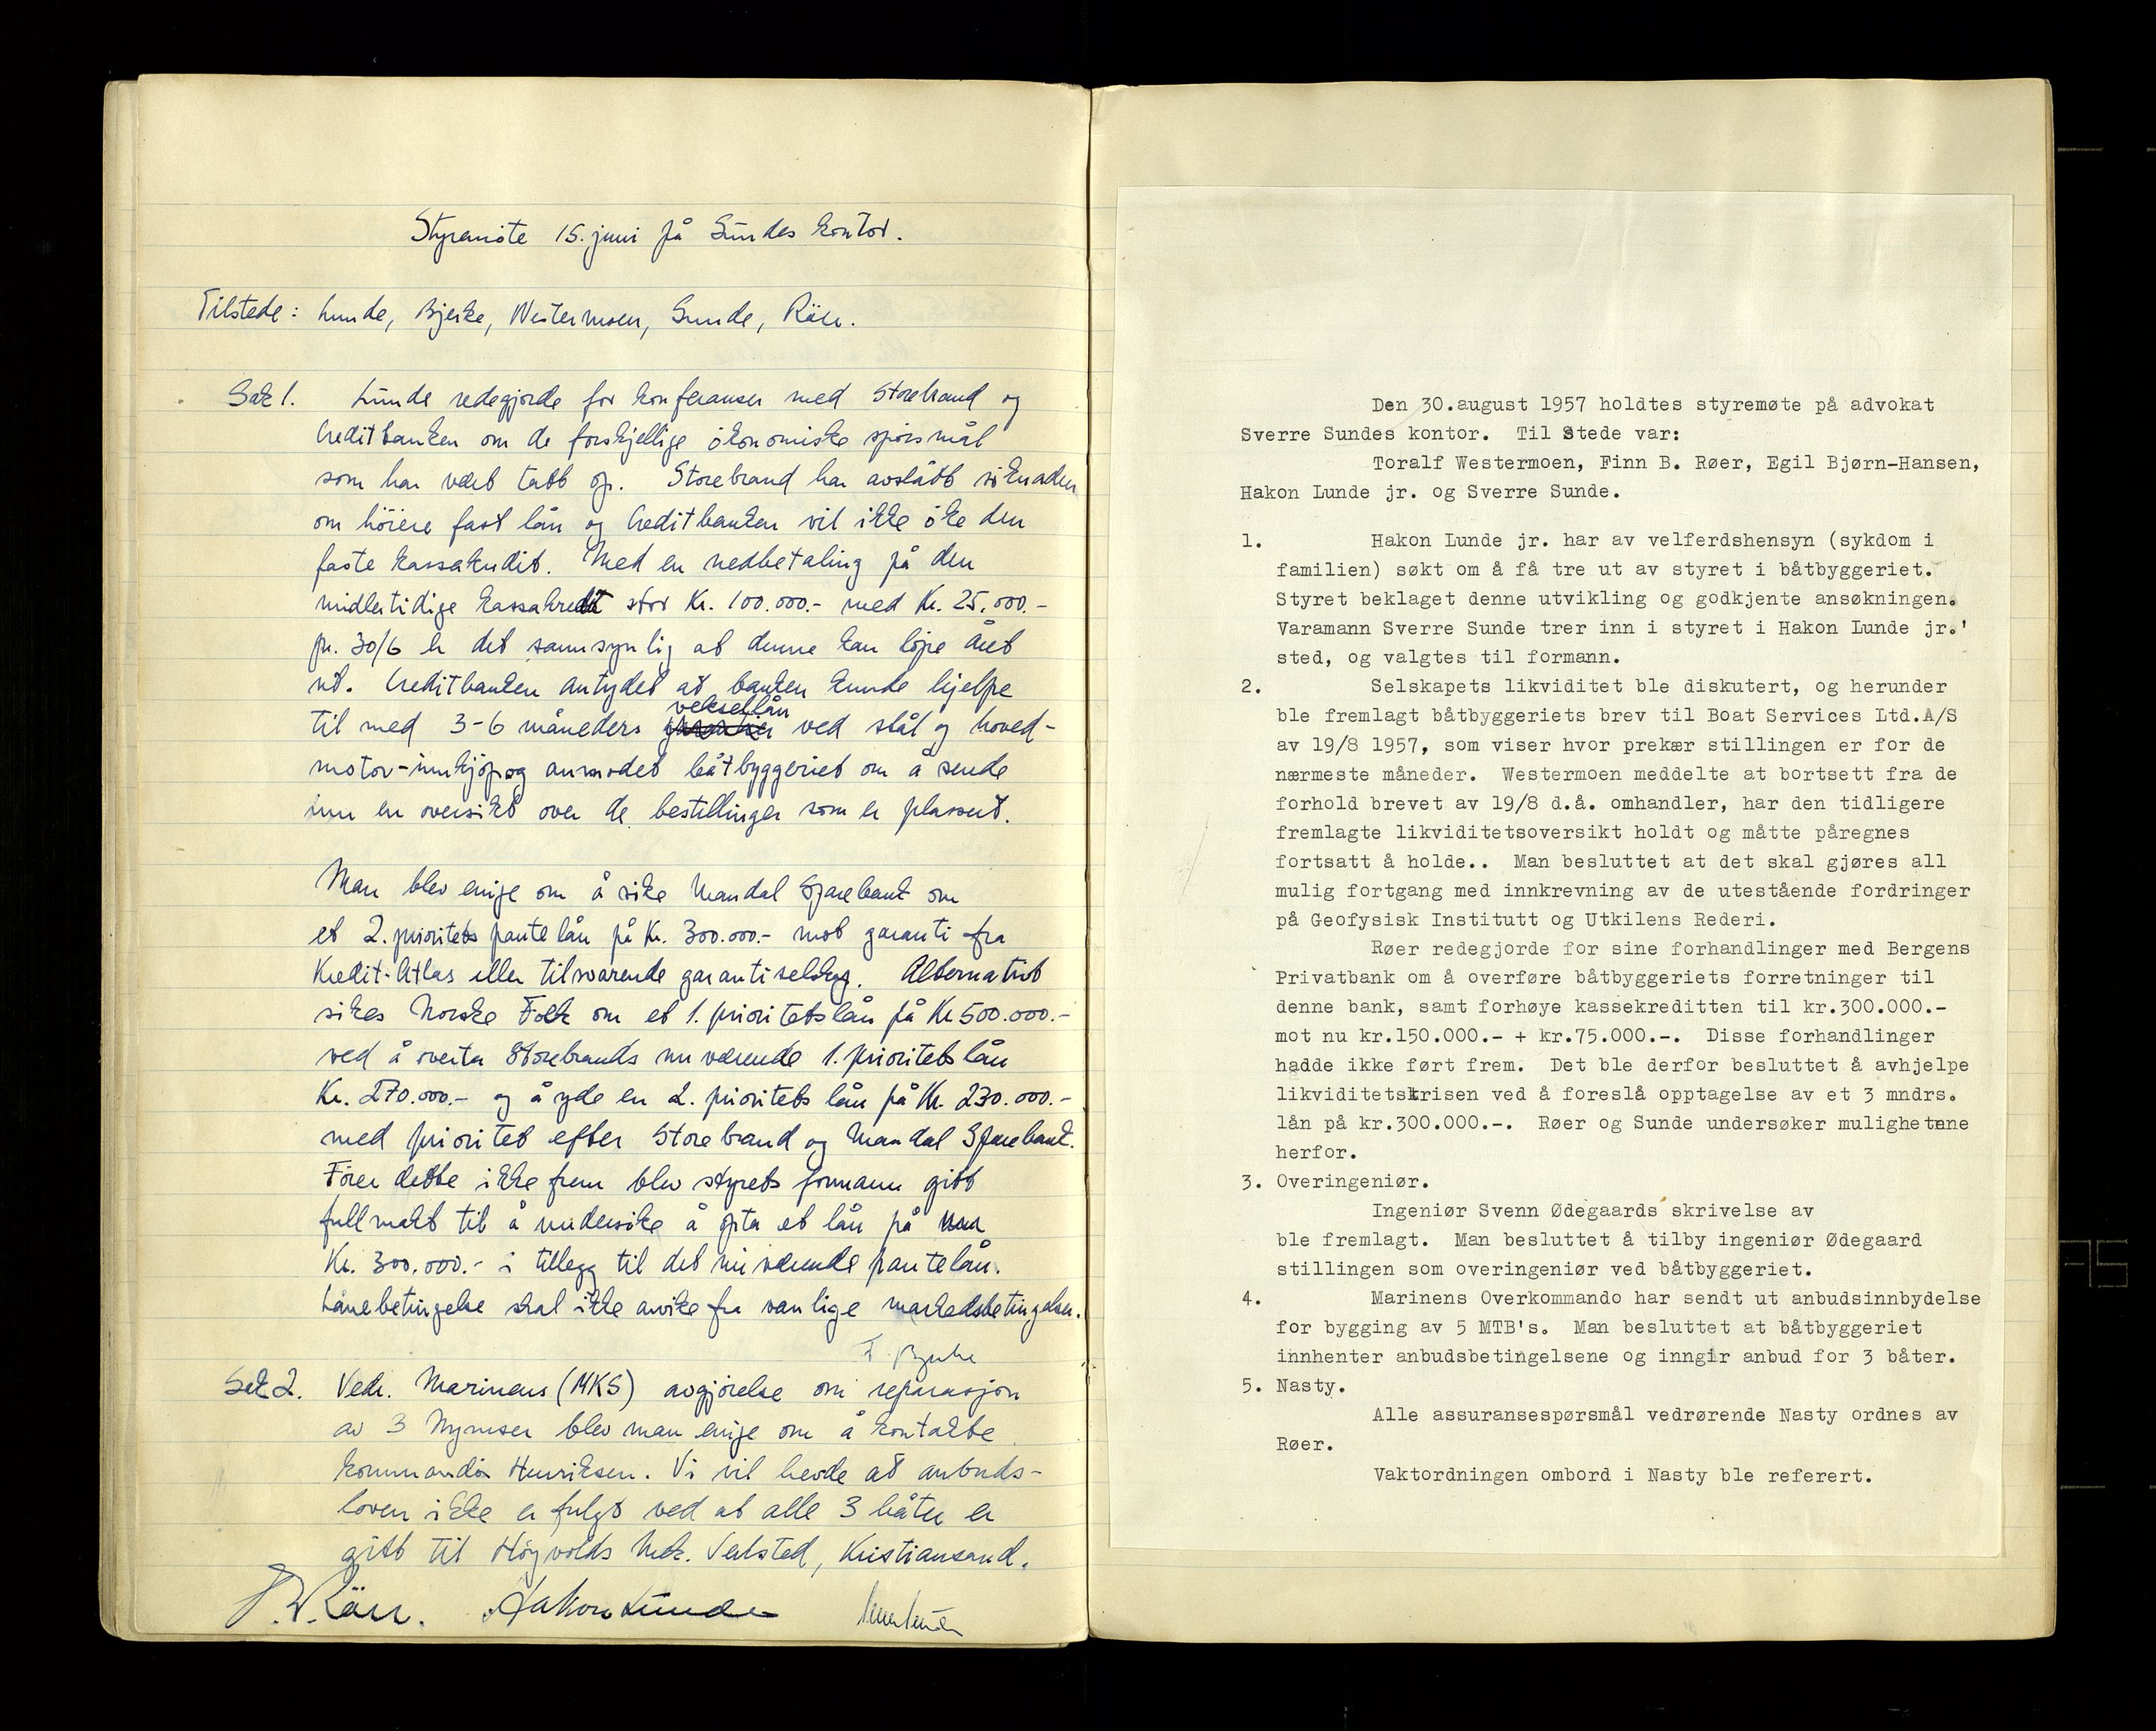 Styremöte 15. juni på Sundes kontor.
Tilstede: Lunde, Bjerke, Westermoen, Sunde, Röer.
Sak 1. Lunde redegjorde for konferanser med Storebrand og
Creditbanken om de forskjellige ökonomiske spörsmål
som har vært tatt op. Storebrand har avslått söknaden
om höiere fast lån og Creditbanken vil ikke öke den
faste kassakredit. Med en nedbetaling på den
midlertidige kassakredit stor Kr. 100.000.- med Kr. 25.000.-
pr. 30/6 er det sannsynlig at denne kan löpe året
ut. Creditbanken antydet at banken kunde hjelpe
til med 3-6 måneders veksellån ved stål og hoved-
motor-innkjöp og anmodet båtbyggeriet om å sende
inn en oversikt over de bestillinger som er plassert.
Man blev enige om å söke Mandal Sparebank om
et 2. prioritets pantelån på Kr. 300.000.- mot garanti fra
Kredit-Atlas eller tilsvarende garantiselskap. Alternativt
sökes Norske Folk om et 1. prioritetslån på Kr 500.000.-
ved å overta Storebrands nuværende 1. prioritetslån
Kr. 270.000.- og å yde en 2. prioritets lån på Kr. 230.000.-
med prioritet efter Storebrand og Mandal Sparebank.
Förer dette ikke frem blev styrets formann gitt
fullmakt til å undersöke å opta et lån på
Kr. 300.000.- i tillegg til det nuværende pantelån.
Lånebetingelse skal ikke avvike fra vanlige markedsbetingelser.
F. Bjerke
Sak 2. Vedr. Marinens (MKS) avgjörelse om reparasjon
av 3 Nymser blev man enige om å kontakte
kommandör Henriksen. Vi vil hevde at anbuds-
loven ikke er fulgt ved at alle 3 båter er
gitt til Höyvolds Mek. Verksted, Kristiansand.
Röer. Hakon Lunde
Den 30.august 1957 holdtes styremøte på advokat
Sverre Sundes kontor. Til Stede var:
Toralf Westermoen, Finn B. Røer, Egil Bjørn-Hansen,
Hakon Lunde jr. og Sverre Sunde.
1. Hakon Lunde jr. har av velferdshensyn (sykdom i
familien) søkt om å få tre ut av styret i båtbyggeriet.
Styret beklaget denne utvikling og godkjente ansøkningen.
Varamann Sverre Sunde trer inn i styret i Hakon Lunde jr.'
sted, og valgtes til formann.
2. Selskapets likviditet ble diskutert, og herunder
ble fremlagt båtbyggeriets brev til Boat Services Ltd.A/S
av 19/8 1957, som viser hvor prekær stillingen er for de
nærmeste måneder. Westermoen meddelte at bortsett fra de
forhold brevet av 19/8 d.å. omhandler, har den tidligere
fremlagte likviditetsoversikt holdt og måtte påregnes
fortsatt å holde.. Man besluttet at det skal gjøres all
mulig fortgang med innkrevning av de utestående fordringer
på Geofysisk Institutt og Utkilens Rederi.
Røer redegjorde for sine forhandlinger med Bergens
Privatbank om å overføre båtbyggeriets forretninger til
denne bank, samt forhøye kassekreditten til kr.300.000.-
mot nu kr.150.000.- + kr.75.000.-. Disse forhandlinger
hadde ikke ført frem. Det ble derfor besluttet å avhjelpe
likviditetskrisen ved å foreslå opptagelse av et 3 mndrs.
lån på kr.300.000.-. Røer og Sunde undersøker mulighetene
herfor.
3. Overingeniør.
Ingeniør Svenn Ødegaards skrivelse av
ble fremlagt. Man besluttet å tilby ingeniør Ødegaard
stillingen som overingeniør ved båtbyggeriet.
4. Marinens Overkommando har sendt ut anbudsinnbydelse
for bygging av 5 MTB's. Man besluttet at båtbyggeriet
innhenter anbudsbetingelsene og inngir anbud for 3 båter.
5. Nasty.
Alle assuransespørsmål vedrørende Nasty ordnes av
Røer.
Vaktordningen ombord i Nasty ble referert.